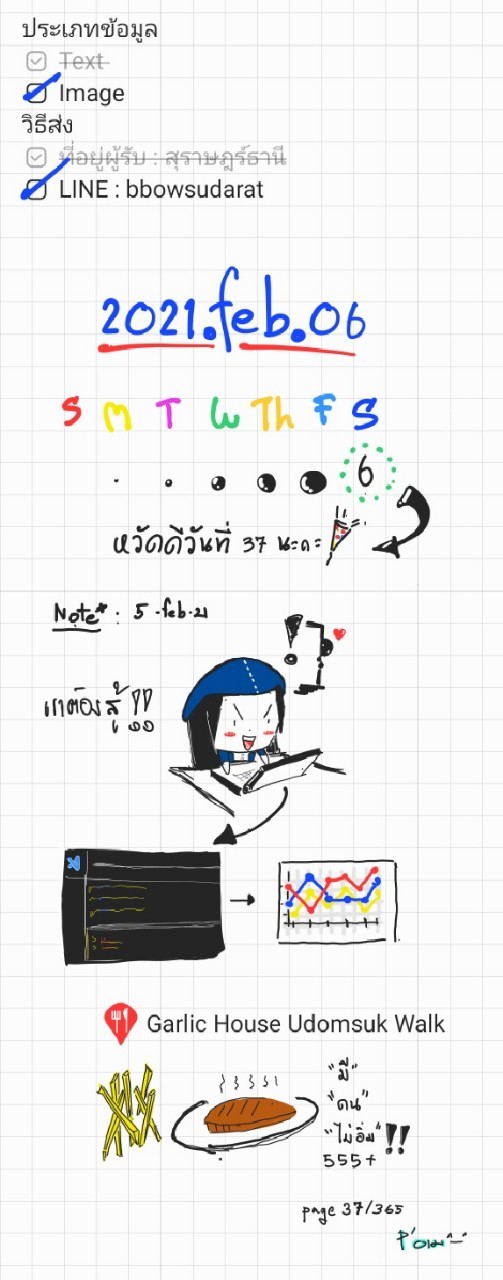 ประเภทข้อมูล
Text
Image
วิธีส่ง
ที่อยู่ผู้รับ : สุราษฎร์ธานี
LINE : bbowsudarat
2021.feb.06
S M T W Th F S
6
หวัดดีวันที่ 37 นะคะ
Note* : 5-feb-21
เราต้องสู้ !!
Garlic House Udomsuk Walk
"มี"
"คน"
"ไม่อิ่ม" !!
555+
page 37/365